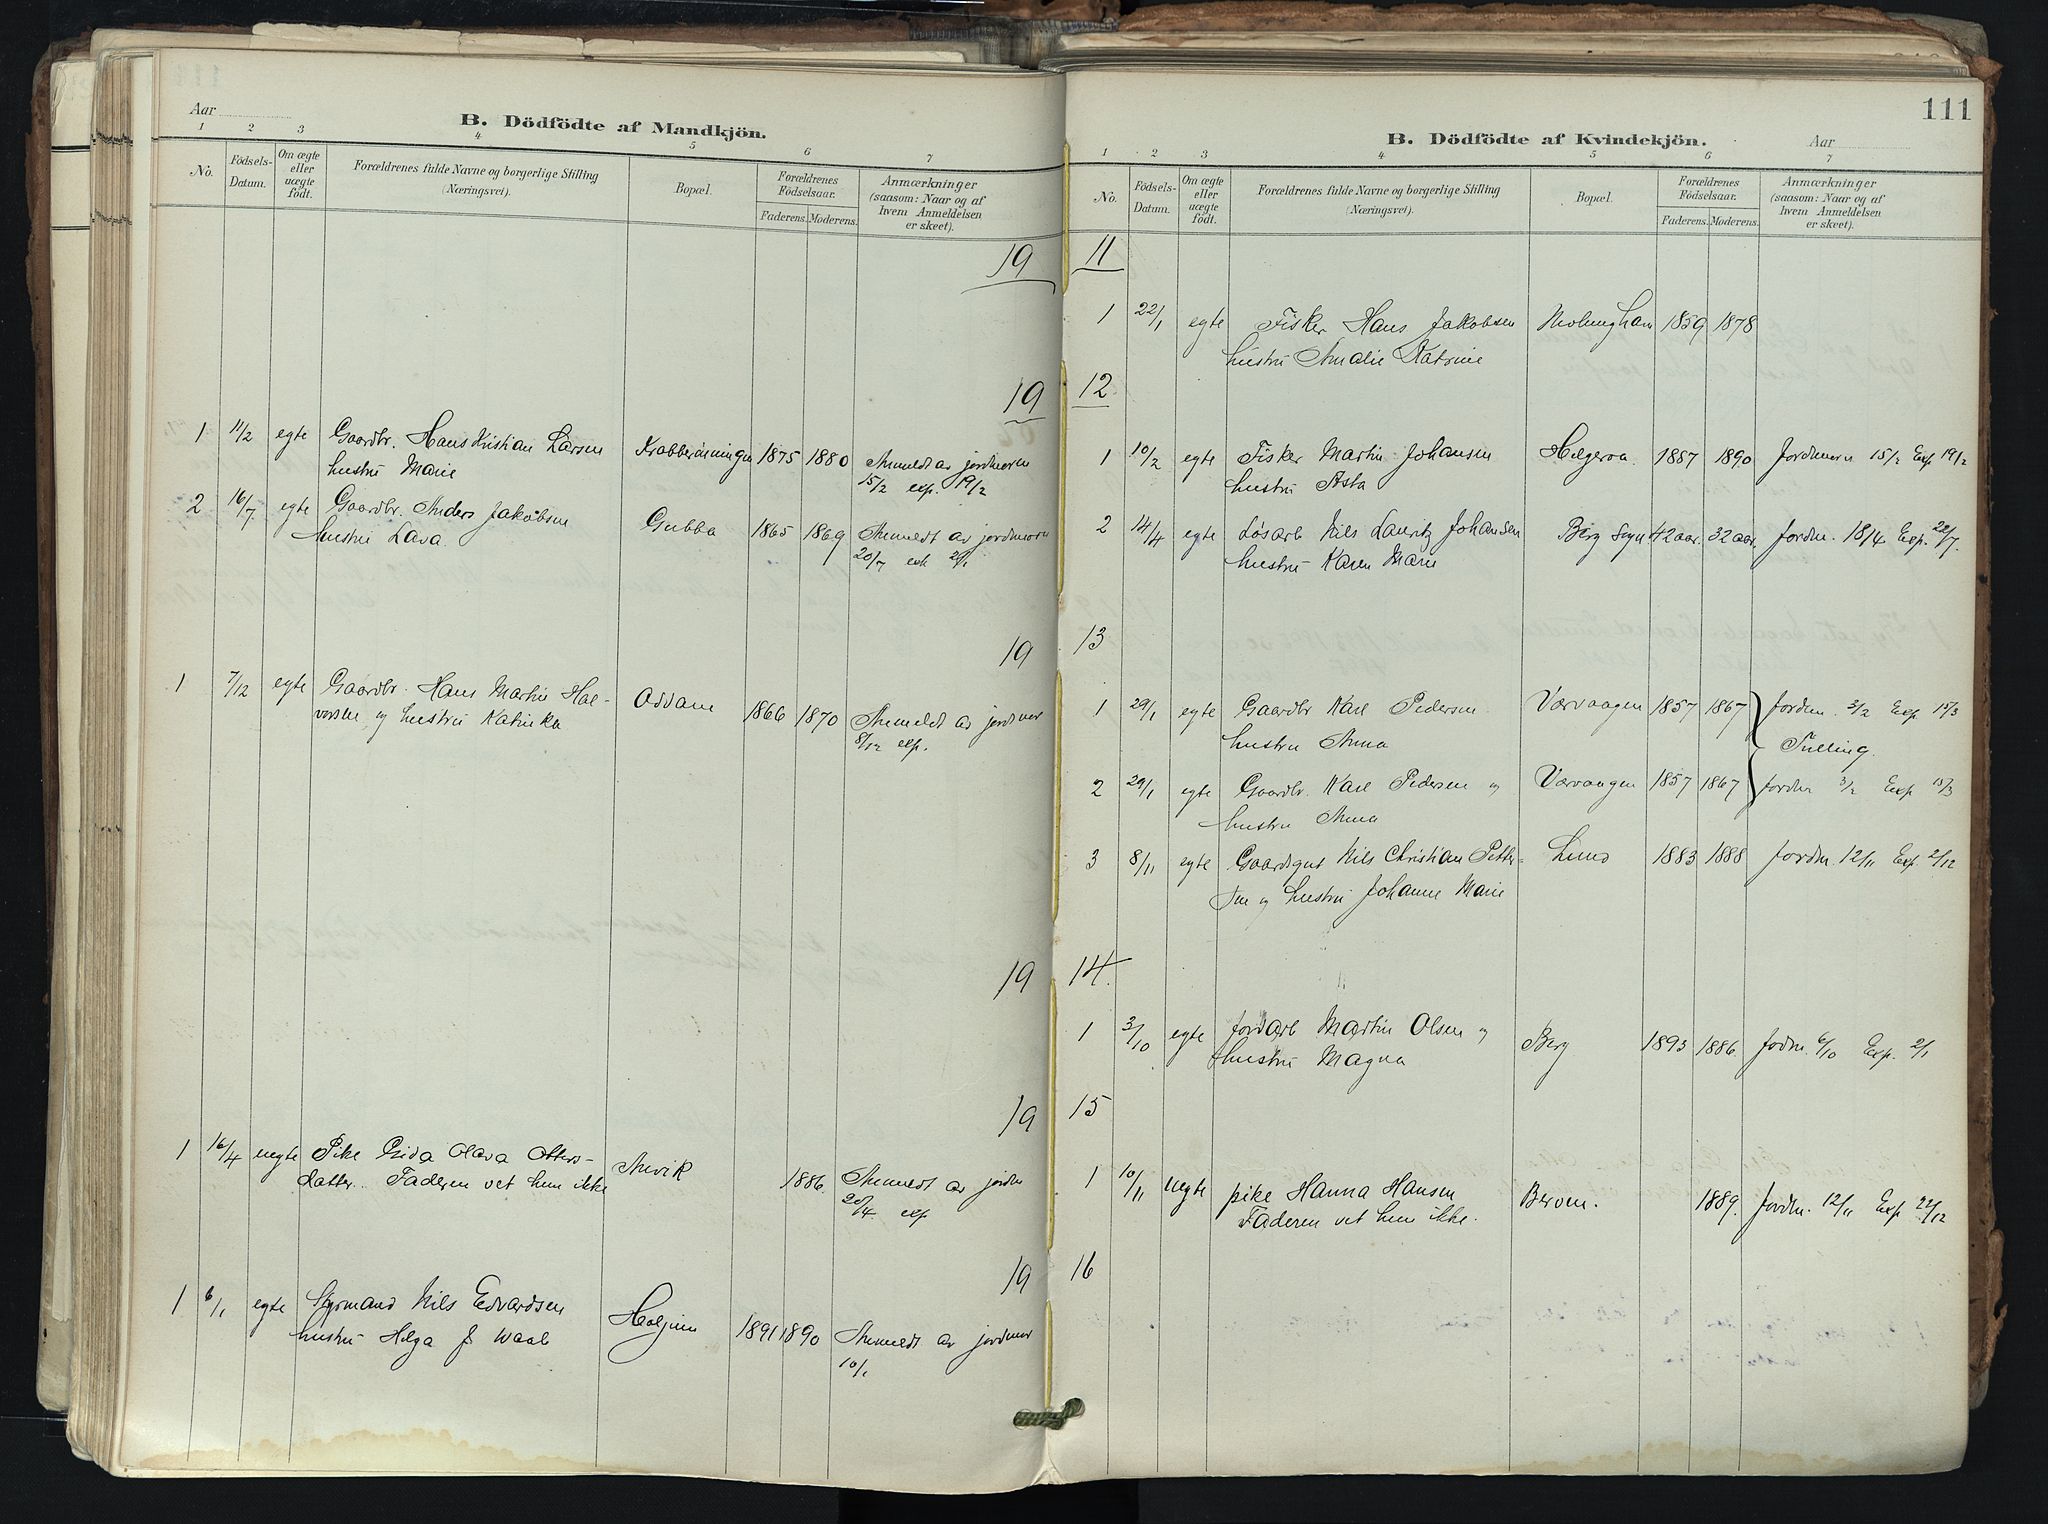 Aar
B. Dödfödte af Mandkjön.
1 2 3 4 5 6 7
No.
Födsels-
Datum.
Om ægte
eller
uægte
födt.
Forældrenes fulde Navne og borgerlige Stilling
(Næringsvei).
Bopæl.
Forældrenes
Födselsaar.
Faderens. Moderens.
Anmærkninger
(saasom: Naar og af
hvem Anmeldelsen
er skeet).
19
19
1 11/2 egte Gaardbr. Hans Kristian Larsen 1875 1880 Anmeldt av jordmoren
hustru Marie 15/2 exp. 19/2
2 16/7 egte Gaardbr. Anders Jakobsen Gubba 1865 1869 Anmeldt av jordmoren
hustru Lava 20/7
19
1 7/12 egte Gaardbr. Hans Martin Hal- Oddane 1866 1870 Anmeldt av jordmor
vorsen og hustru Katinka 8/12 exp.
19
19
1 16/4 uegte Pike Gida Olava Otters- Anvik 1886. Anmeldt av jordm
datter. Faderen vet hun ikke 20/4. exp
19
1 6/1 egte Styrmand Nils Edvardsen 1891 1890 Anmeldt av jordmor
hustru Helga J Waal 10/1
111
B. Dödfödte af Kvindekjön.
Aar
1 2 3 4 5 6 7
No.
Födsels-
Datum.
Om ægte
eller
uægte
födt.
Forældrenes fulde Navne og borgerlige Stilling
(Næringsvei).
Bopæl.
Forældrenes
Födselsaar.
Faderens. Moderens.
Anmærkninger
(saasom: Naar og af
hvem Anmeldelsen
er skeet).
11
1 22/1 egte Fisker Hans Jakobsen Nevlungham 1859 1878
hustru Amalie Katrine
12
1 10/2 egte Fisker Martin Johansen Helgeroa. 1887 1890 Jordmorn 15/2 Exp 19/2
hustru Asta
2 14/4 egte Løsarb Nils Lauritz Johansen Berg Sogn 42 aar. 32 aar. Jordm. 18/4 Exp. 22/7.
hustru Karen Marie
13
1 29/1 egte Gaardbr Karl Pedersen Værvaagen 1857 1867 Jordm. 3/2 Exp 15/3
hustru Anna Tvilling.
2 29/1 egte Gaardbr. Karl Pedersen og Værvaagen 1857 1867 Jordm 3/2 Exp 15/3
hustru Anna
3 8/11 egte Gaardgut Nils Christian Petter- Lund 1883 1888 Jordm 12/11 Exp 2/12
sen og hustru Johanne Marie
14.
1 3/10 egte Jordarb Martin Olsen og Berg 1893 1886. Jodm. 6/10 Exp. 2/1
hustru Magna
15
1 10/11 uegte pike Hanna Hansen Berven. 1889. Jordm. 12/11 Exp 22/12
Faderen vet hun ikke.
16